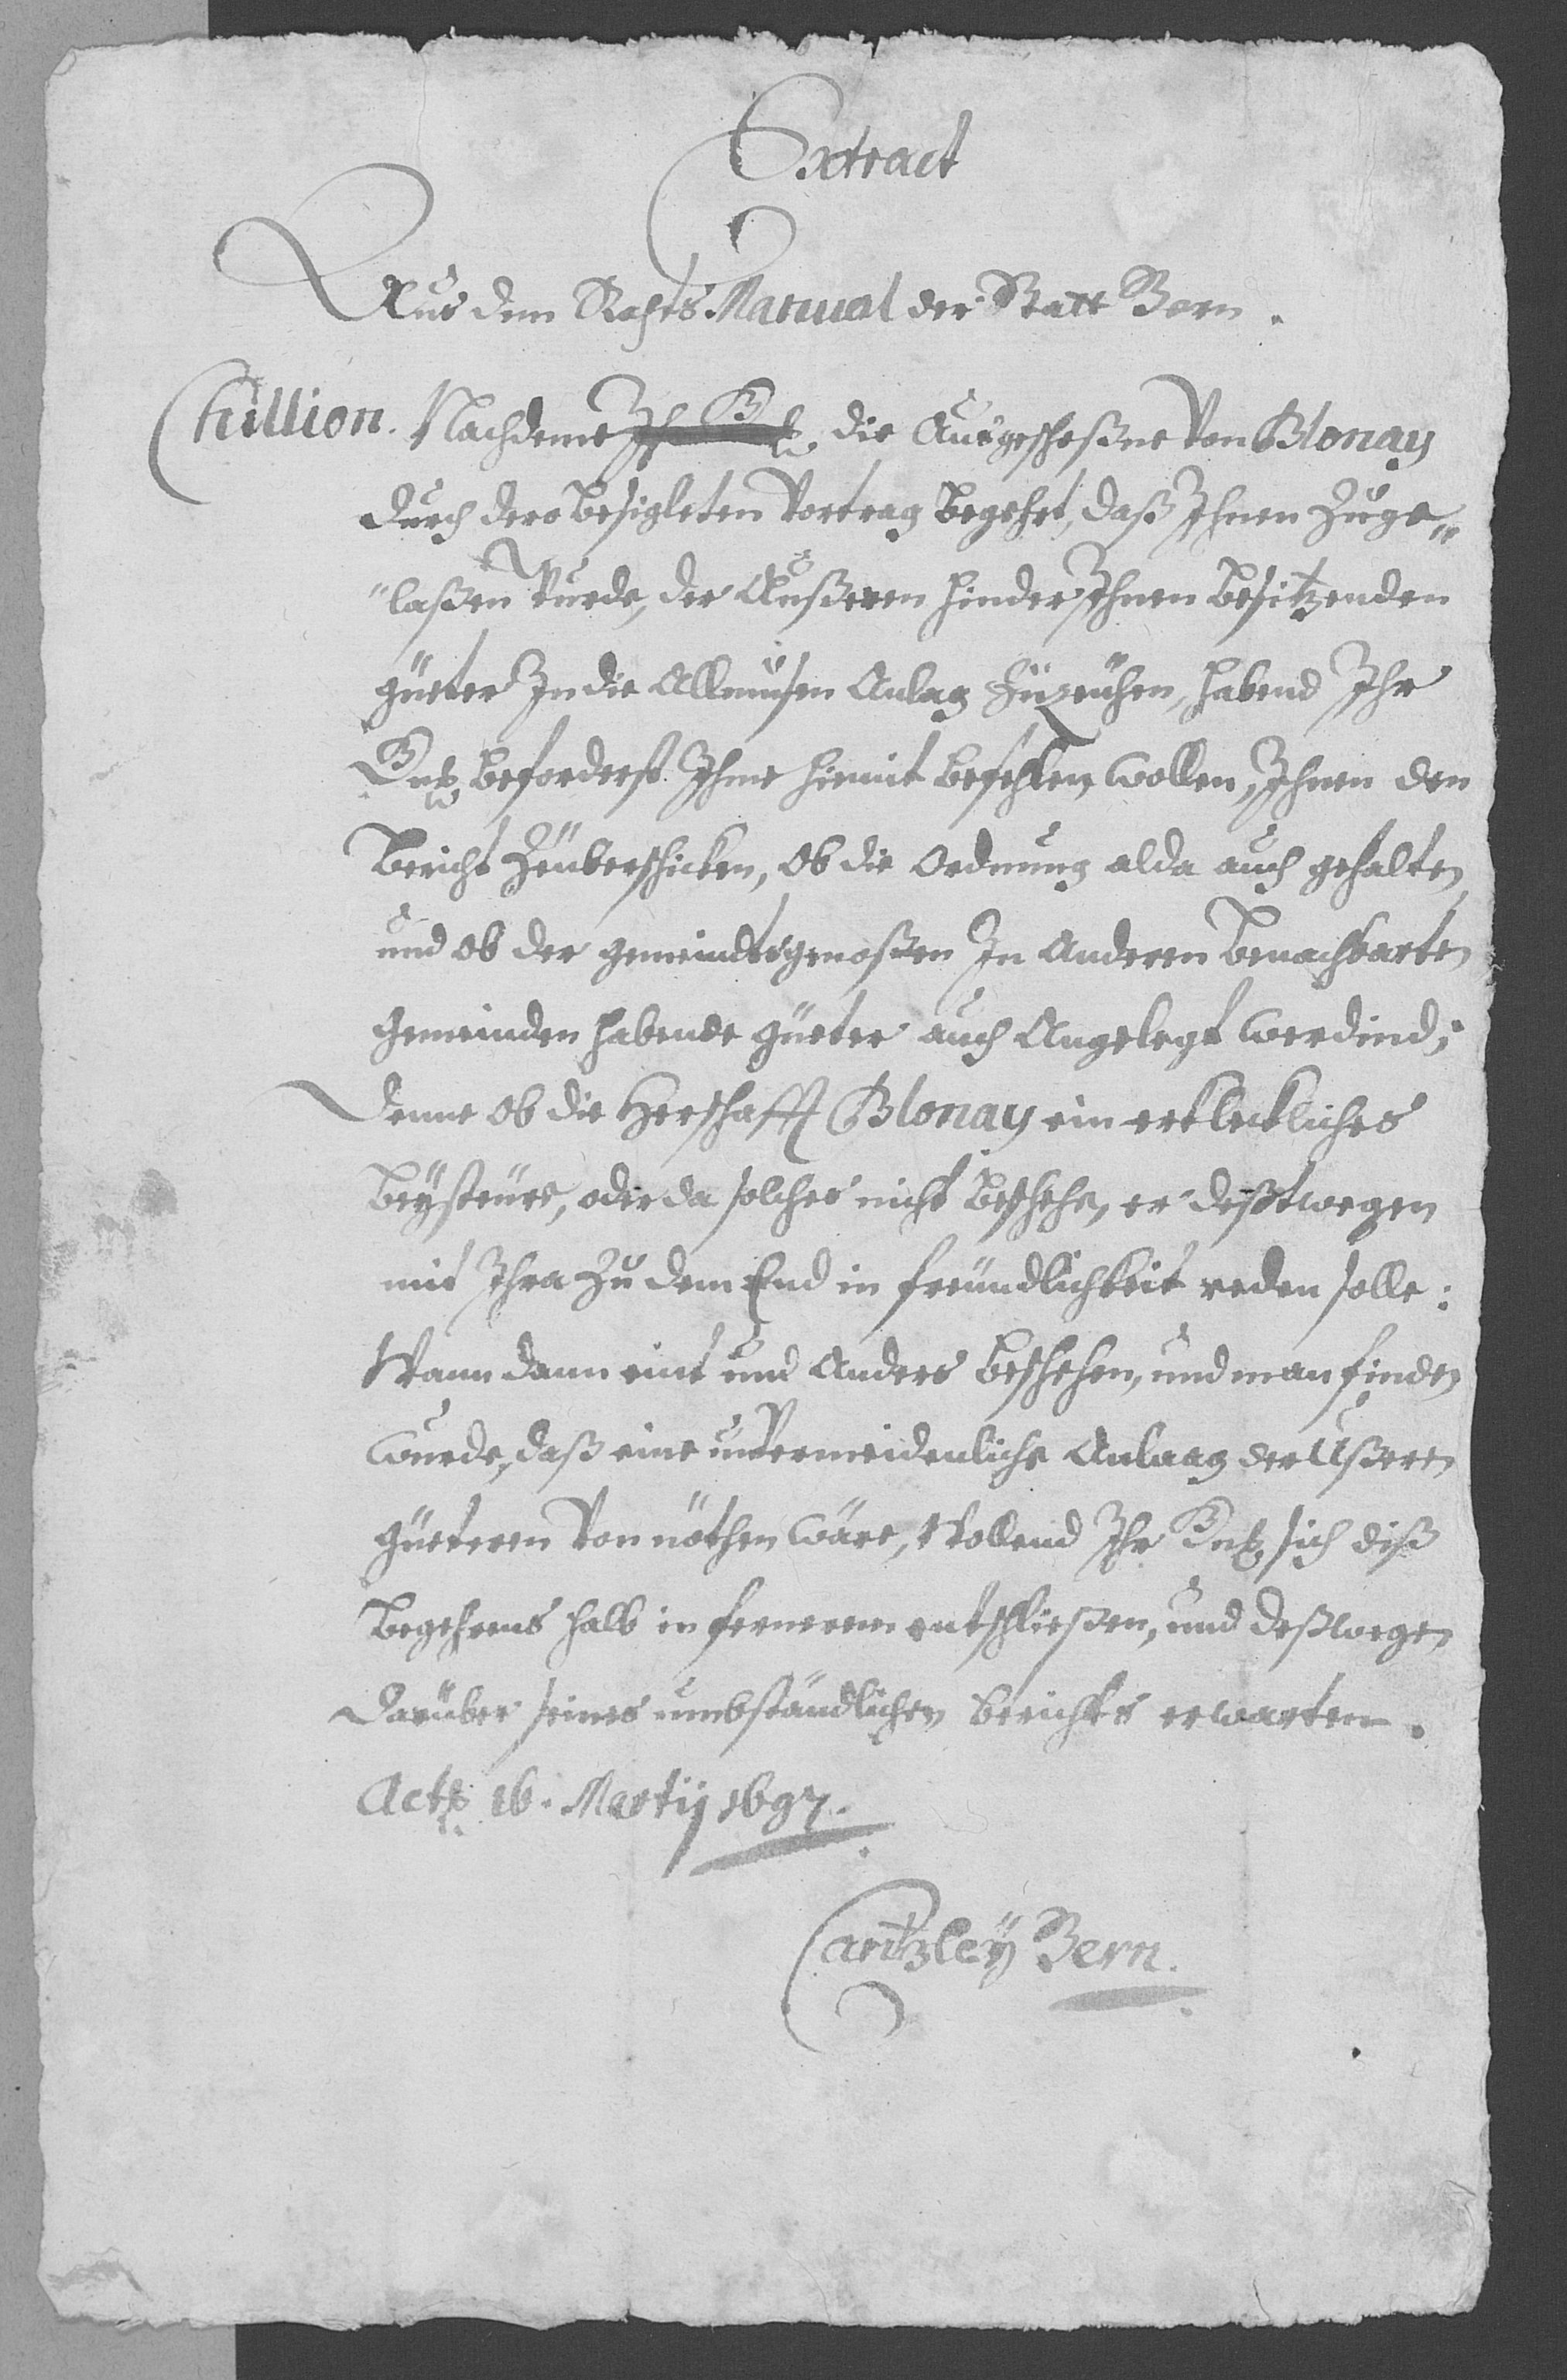 Extract
Aus dem Rahts Manual der Statt Bern.
Chillion. Nachdeme die Ausgeschoßne von Blonay
durch dero besigleten Vortrag begehrt, daß Ihnen zuge„
"laßen wurde, der Außeren hinder Ihnen besitzenden
güeter In die Allmusen Anlag zuzeühen, habend Ihr
Gn. beforderst Ihme hiemit befehlen wollen, Ihnen den
bericht zeüberschicken, ob die Ordnung alda auch gehalten,
und ob der gemeindtsgnoßen In Anderen benachbarten
gemeinden habende güeter auch Angelegt werdind;
denne ob die Herschafft Blonay ein erkleckliches
beysteüre, oder da solches nicht beschehe, er deßtwegen
mit Ihra zu dem End in freündlichkeit reden solle:
Wann dann eint und Anders beschehen, und man finden
wurde, daß eine unvermeidenliche Anlaag der Ußeren
güeteren von nöthen wäre, Wollend Ihr Gn. sich diß
begehrens halb in fernerem entschließen, und deßwegen
darüber seines umbständlichen berichts erwarten.
Act. 16. Martij 1697.
Cantzley Bern.